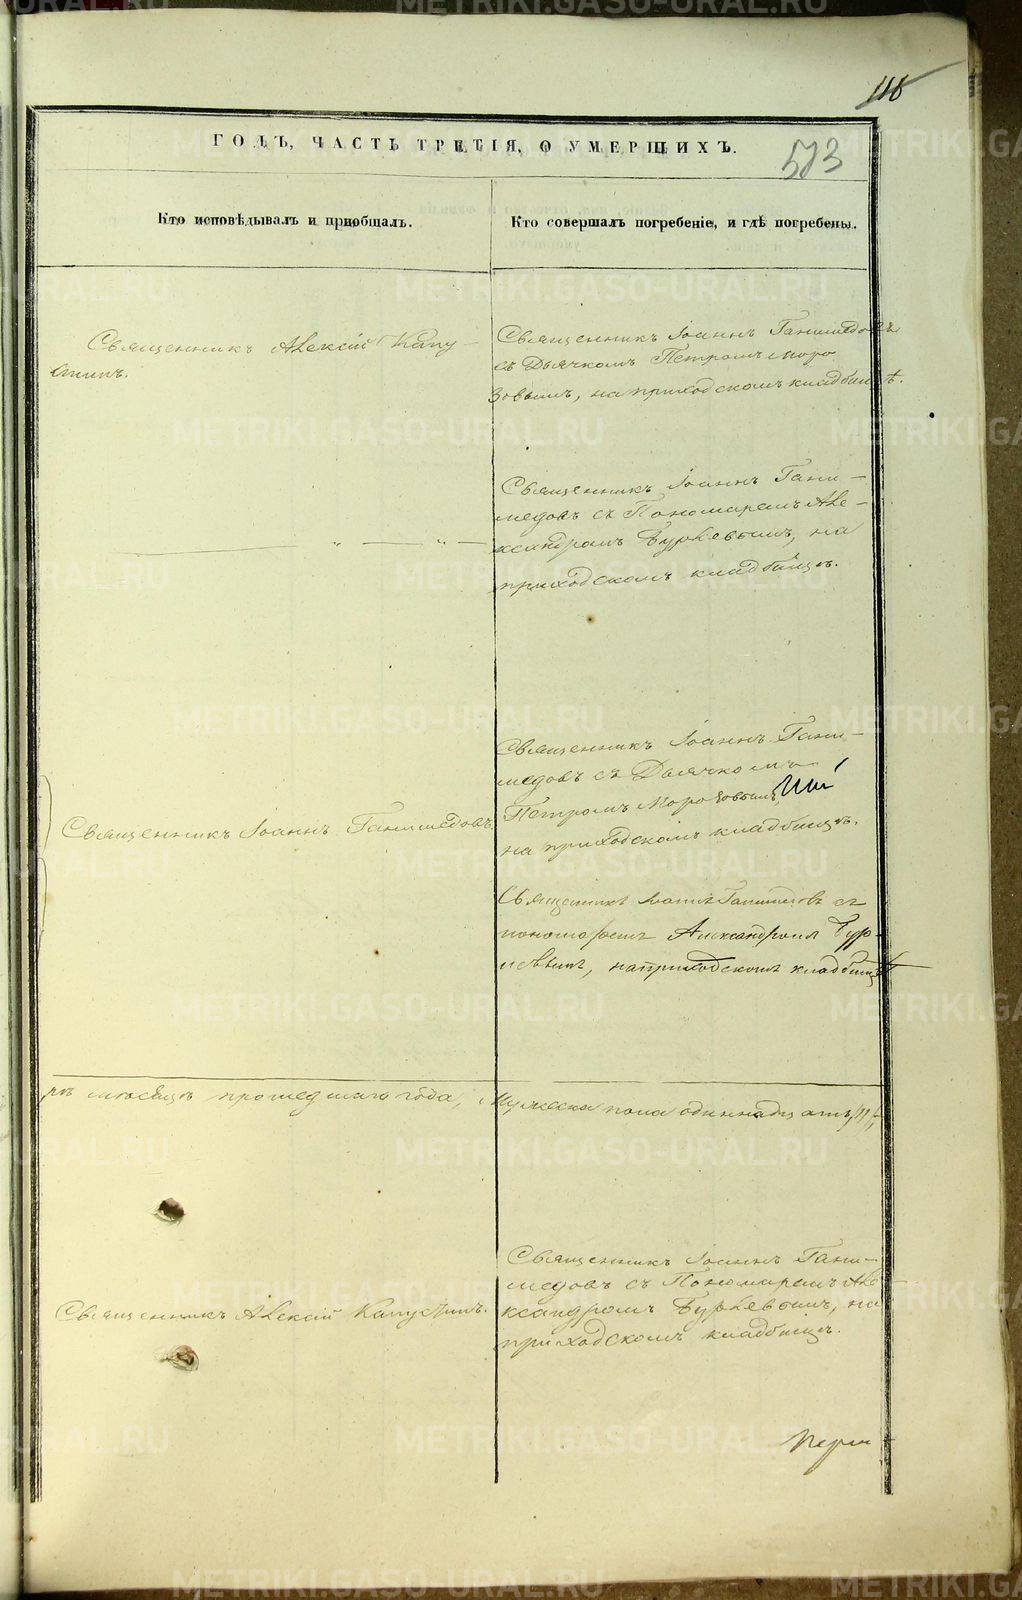 116
573
ГОДЪ, ЧАСТЬ ТРЕТІЯ, О УМЕРШИХЪ.
Кто исповѣдывалъ и приобщалъ.
Кто совершалъ погребеніе, и гдѣ погребены.
Священникъ Алексій Капу-
стинъ.
Священникъ Іоаннъ Ганимедовъ
съ Дьячкомъ Петромъ Моро
зовымъ, на приходскомъ кладбищѣ.
Священникъ Іоаннъ Гани-
медовъ съ Пономаремъ Але-
ксандромъ Бурлевымъ, на
приходскомъ кладбищѣ.
Священникъ Іоаннъ Ганимедовъ.
Священникъ Іоаннъ Гани-
медовъ съ Дьячкомъ
Петромъ Морозовымъ,
на приходскомъ кладбищѣ.
Священникъ Іоаннъ Ганимедовъ съ
пономаремъ Александромъ Бур-
левымъ, на приходскомъ кладбищѣ
рѣ мѣсяцѣ прошедшаго года, Мужеска пола одиннадцать /11/,
Священникъ Алексій Капустинъ.
Священникъ Іоаннъ Гани-
медовъ съ Пономаремъ Але
ксандромъ Бурлевымъ, на
приходскомъ кладбищѣ.
METRIKI.GASO-URAL.RU